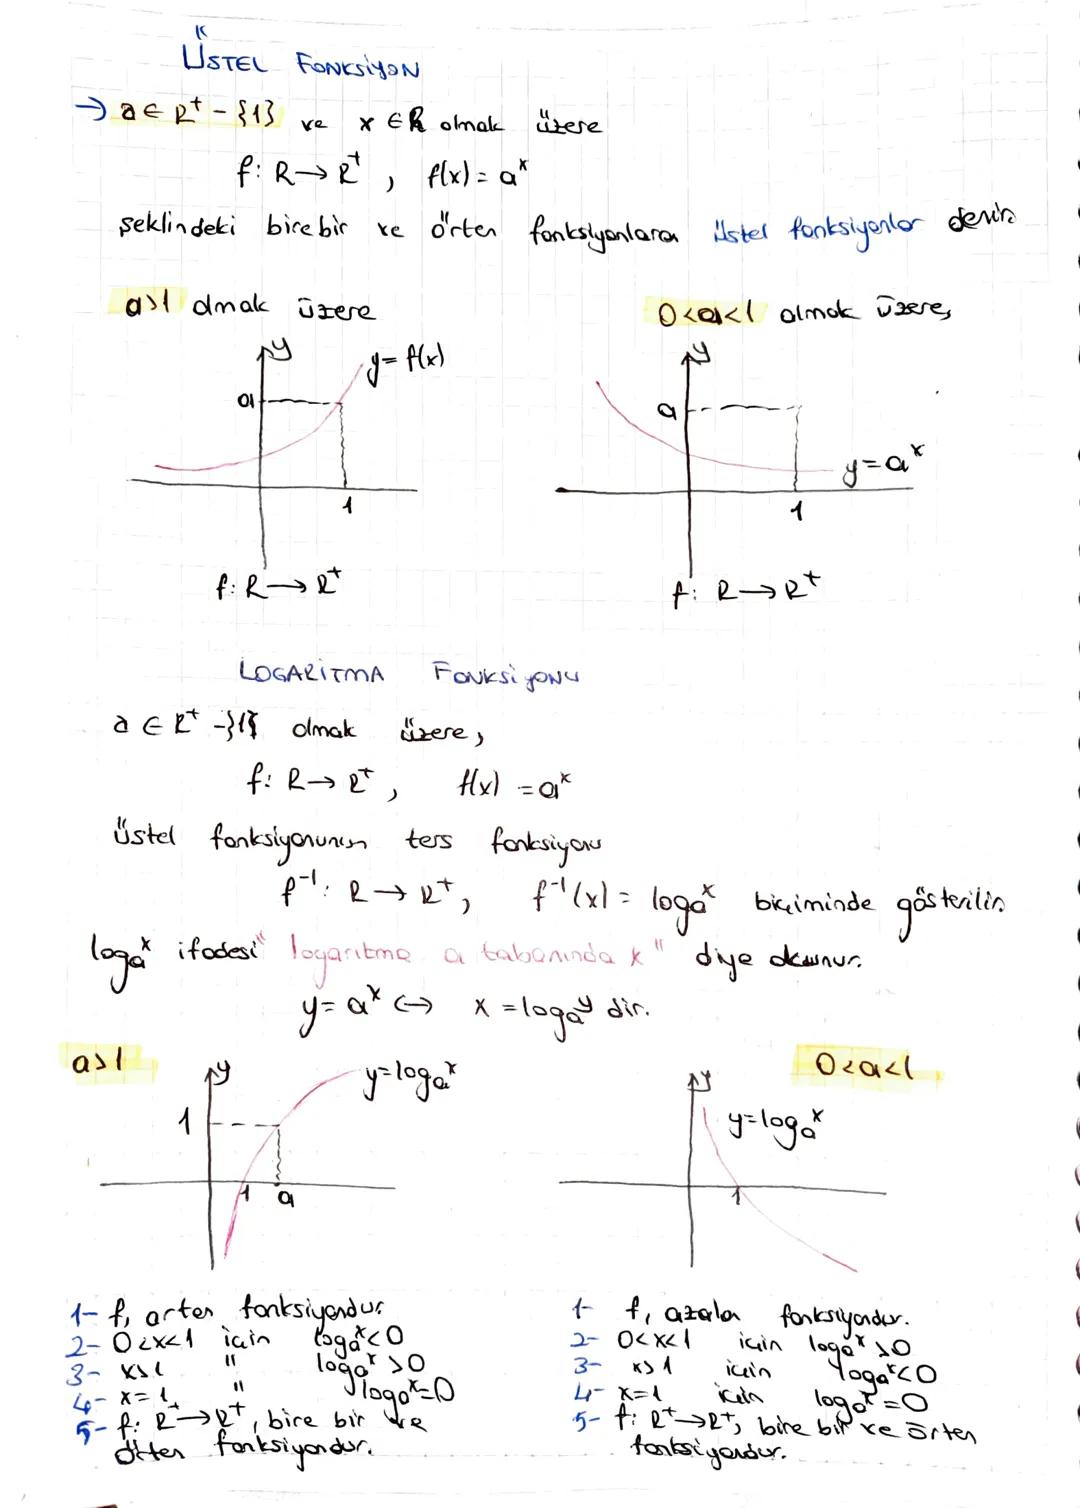 ÜSTEL FONKSİYON
→ a ∈ R⁺ - {1} ve x ∈ R olmak üzere
f: R → R⁺, f(x) = aˣ
şeklindeki birebir ve örten fonksiyonlara üstel fonksiyonlar denir.
a>1 olmak üzere
0<a<1 olmak üzere,
y
y = f(x)
a
1
f: R → R⁺
y
a
y = aˣ
1
f: R → R⁺
LOGARİTMA FONKSİYONU
a ∈ R⁺ -{1} olmak üzere,
f: R → R⁺, f(x) = aˣ
üstel fonksiyonunun ters fonksiyonu
f⁻¹: R → R⁺, f⁻¹(x) = logₐˣ biçiminde gösterilir.
logₐˣ ifadesi "logaritma a tabanında x" diye okunur.
y = aˣ ↔ x = logₐʸ dir.
a>1
y
y=logₐˣ
1
1 a
0<a<1
y
y=logₐˣ
1
1- f, artan fonksiyondur.
2- 0<x<1 için logₐˣ<0
3- x>1 " logₐˣ>0
4- x=1 " logₐˣ=0
5- f: R⁺→R⁺, bire bir ve
örten fonksiyondur.
1- f, azalan fonksiyondur.
2- 0<x<1 için logₐˣ>0
3- x>1 için logₐˣ<0
4- x=1 için logₐˣ=0
5- f: R⁺→R⁺, bire bir ve örten
fonksiyondur.